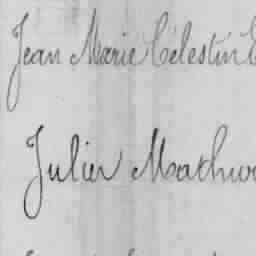 Jean Marie Célestin
Julien Mathur